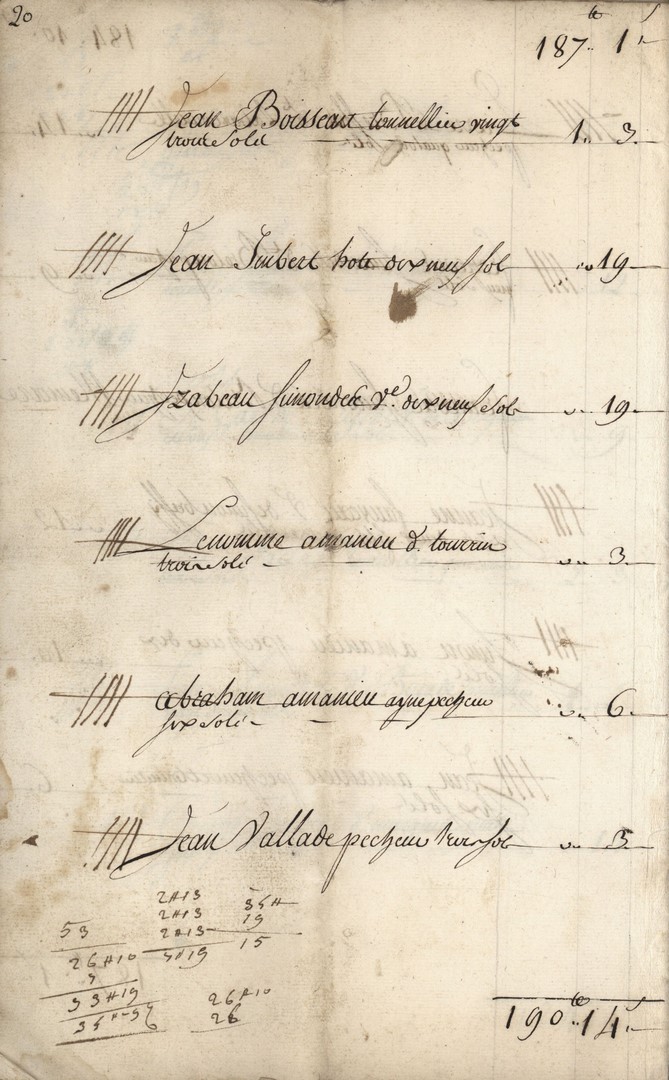 20
187 ₶ 1 s
Jean Boisseau tonnellier vingt
trois sols 1 .. 3
Jean Imbert hote dix neuf sol 19
Izabeau Simondet Ve. dix neuf sol 19
Lenomme amanieu d. tourrin
trois sols 3
abraham amanieu ayne pecheur
six sols 6
Jean Vallade pecheur trois sol 3
2 ₶ 13
2 ₶ 13
53 2 ₶ 13
19
15
26 ₶ 10 7 ₶ 19
7
33 ₶ 19 26 ₶ 10
26
190 ₶ 14 s